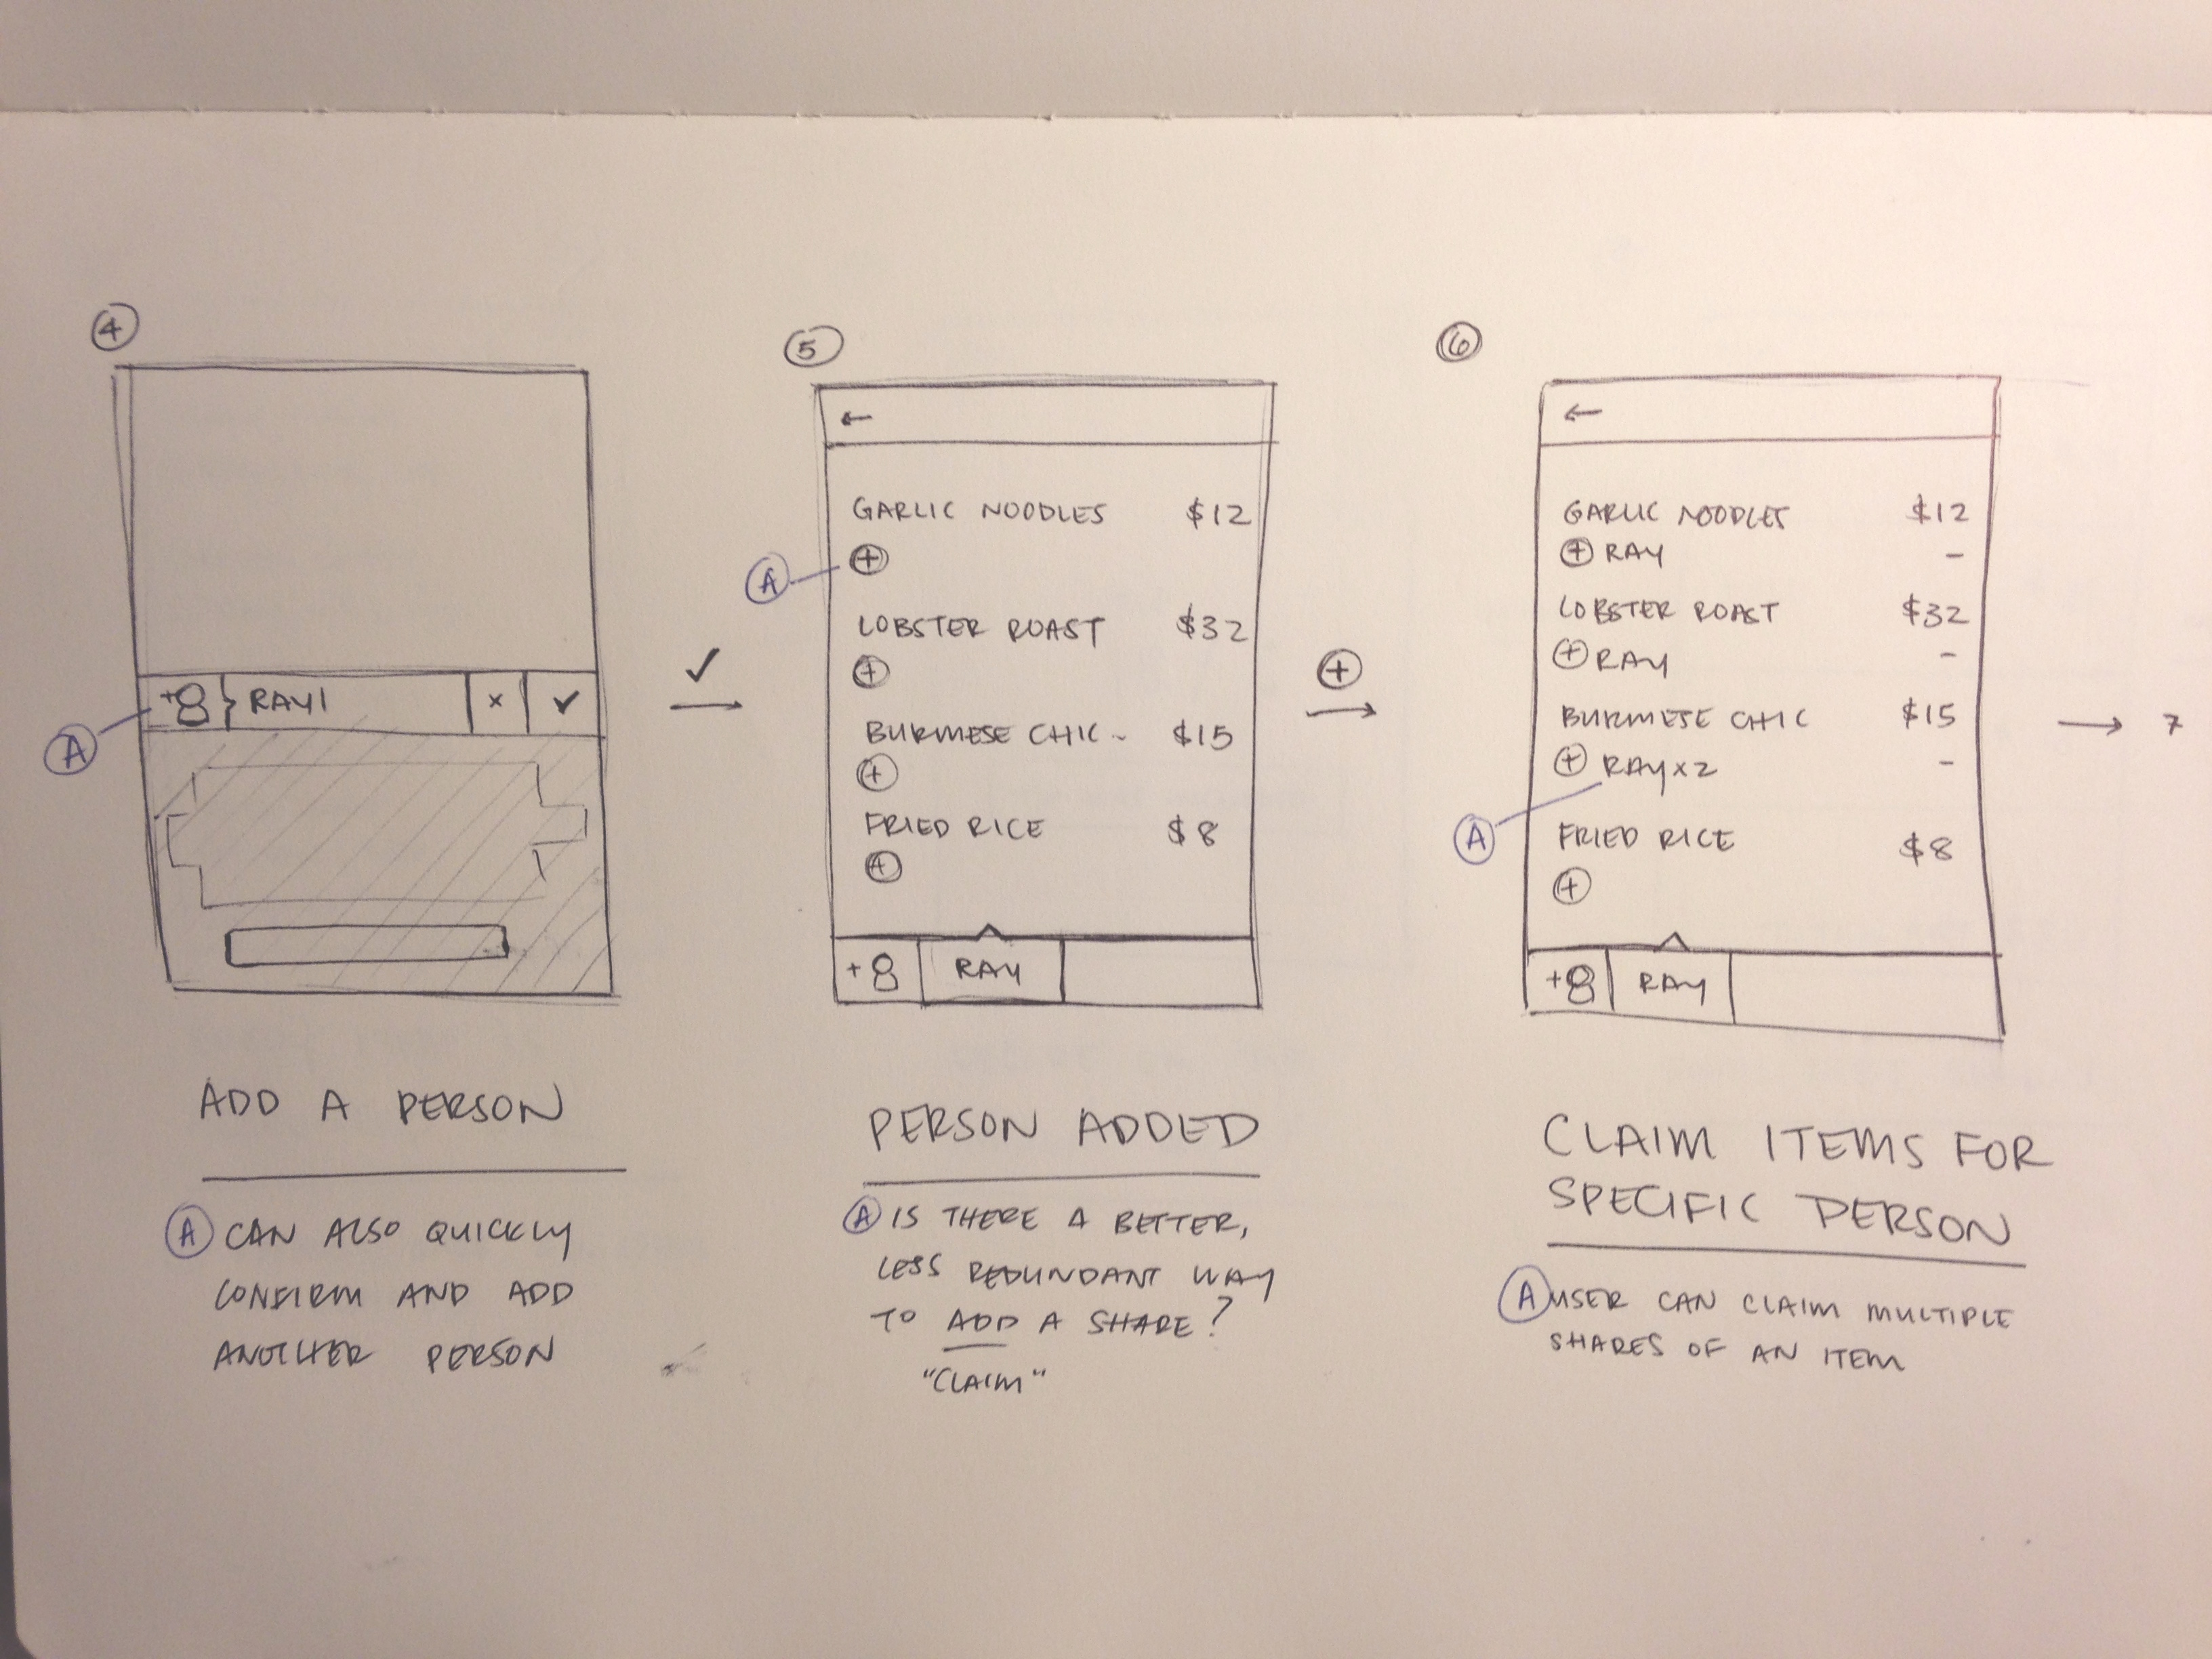 4
+8 RAY| × ✓
A
ADD A PERSON
A CAN ALSO QUICKLY
CONFIRM AND ADD
ANOTHER PERSON
✓
→
5
←
GARLIC NOODLES $12
+
A
LOBSTER ROAST $32
+
BURMESE CHIC - $15
+
FRIED RICE $8
+
+8 RAY
PERSON ADDED
A IS THERE A BETTER,
LESS REDUNDANT WAY
TO ADD A SHARE?
"CLAIM"
+
→
6
←
GARLIC NOODLES $12
+ RAY -
LOBSTER ROAST $32
+ RAY -
BURMESE CHIC $15
+ RAY x2 -
A
FRIED RICE $8
+
+8 RAY
→ 7
CLAIM ITEMS FOR
SPECIFIC PERSON
A USER CAN CLAIM MULTIPLE
SHARES OF AN ITEM